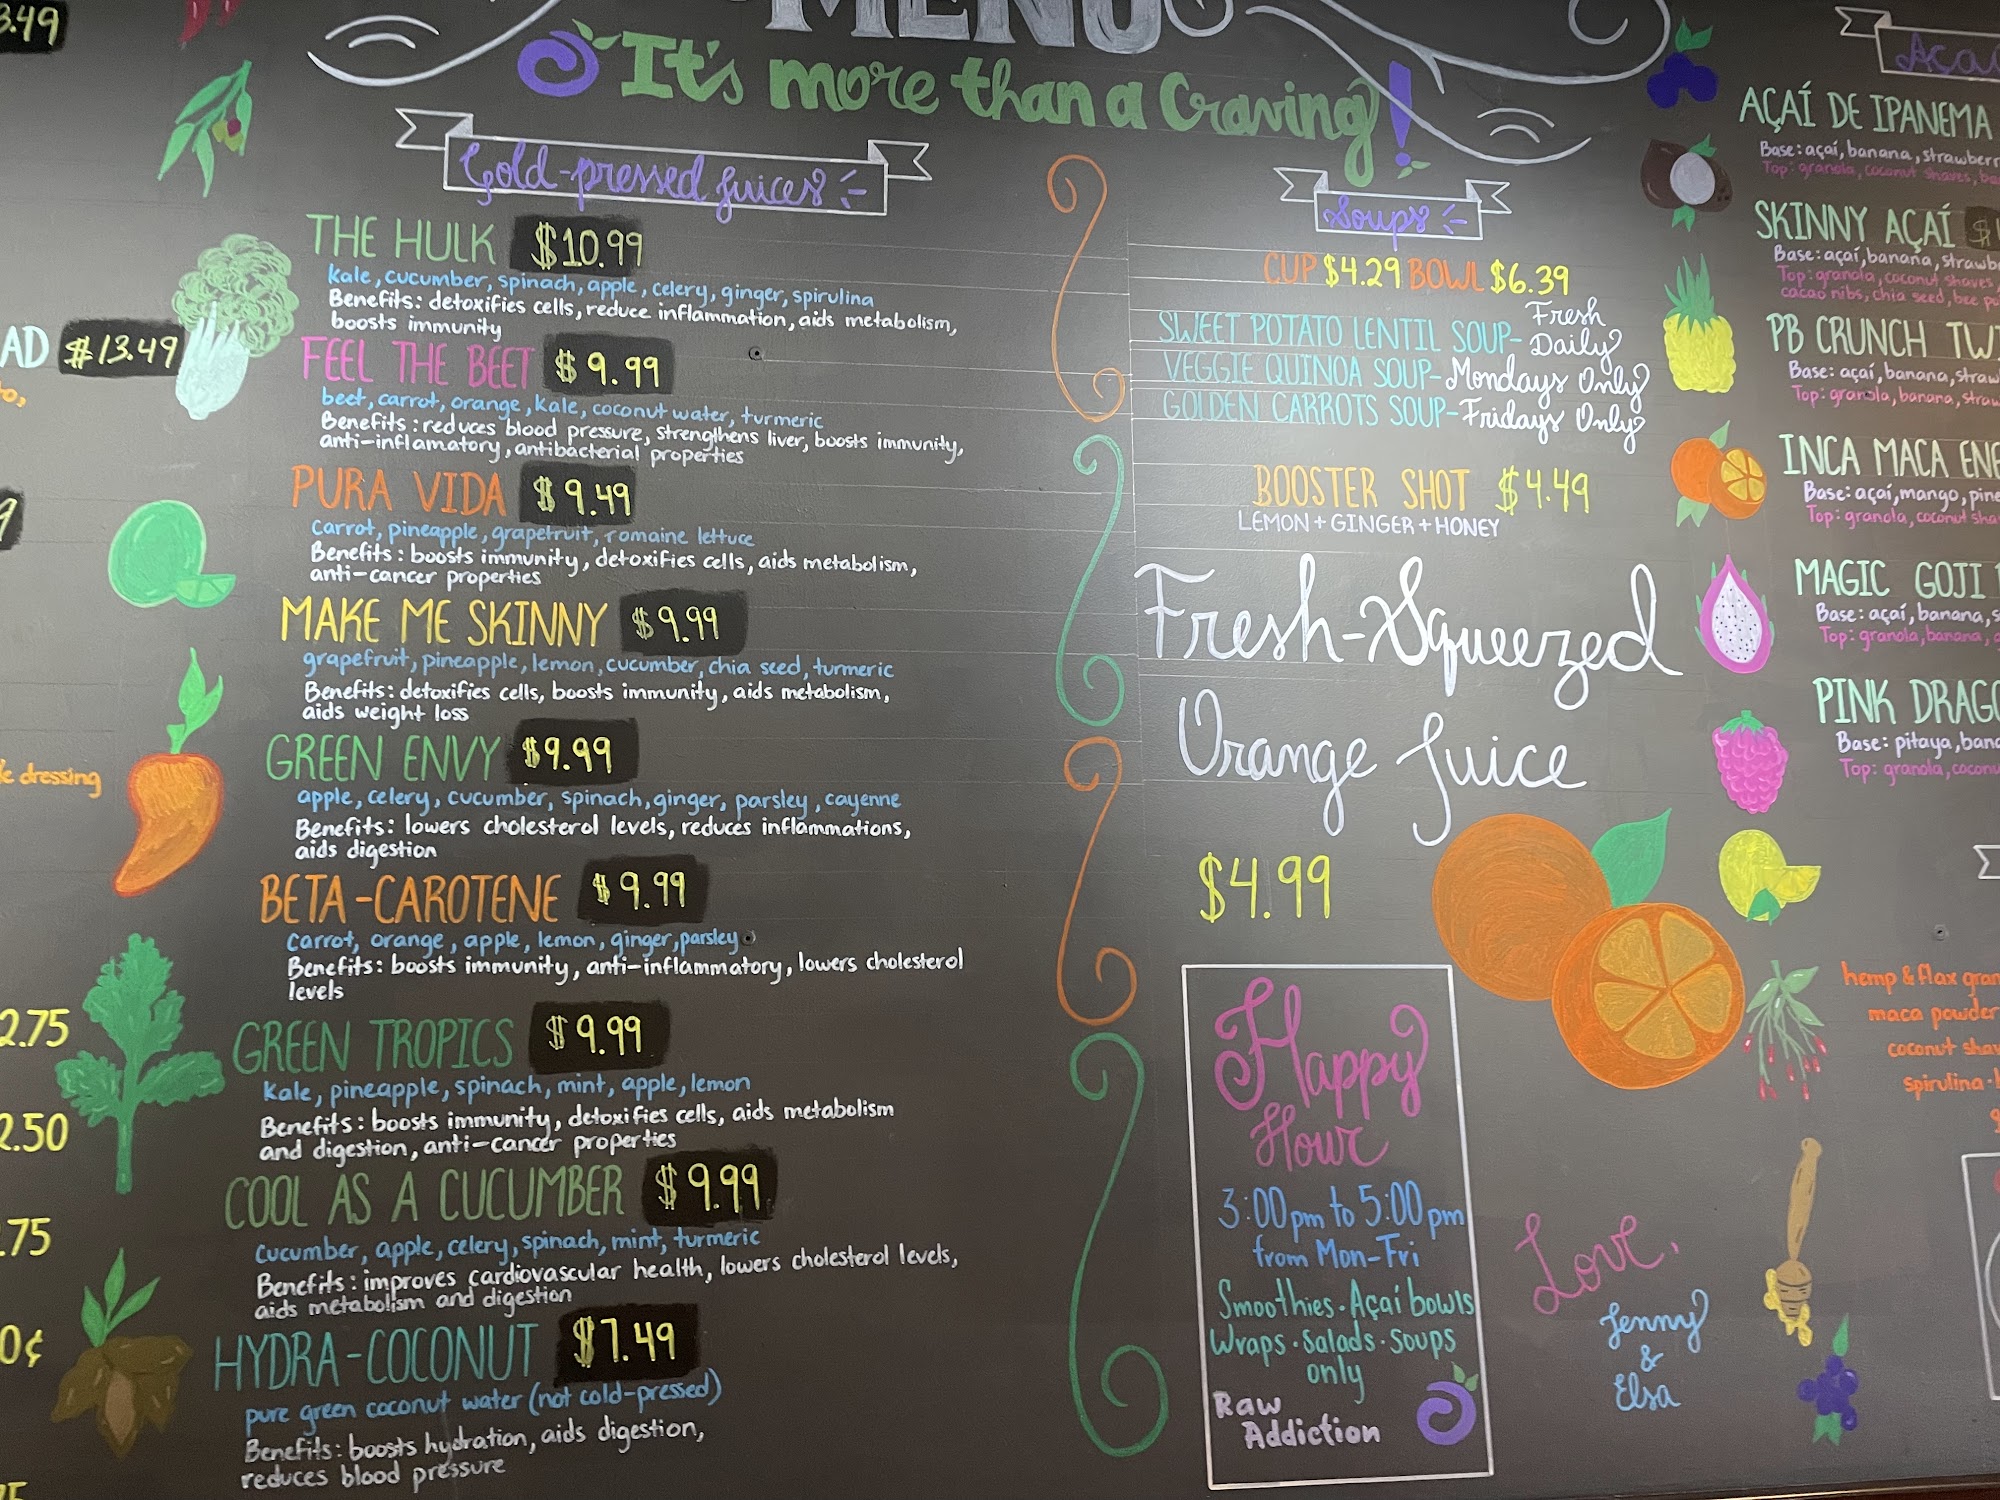 3.49
AD $13.49
to,
9
le dressing
2.75
2.50
.75
0¢
MENU
It's more than a Craving!
Cold-pressed Juices
THE HULK $10.99
kale, cucumber, spinach, apple, celery, ginger, spirulina
Benefits: detoxifies cells, reduce inflammation, aids metabolism,
boosts immunity
FEEL THE BEET $9.99
beet, carrot, orange, kale, coconut water, turmeric
Benefits: reduces blood pressure, strengthens liver, boosts immunity,
anti-inflamatory, antibacterial properties
PURA VIDA $9.49
carrot, pineapple, grapefruit, romaine lettuce
Benefits: boosts immunity, detoxifies cells, aids metabolism,
anti-cancer properties
MAKE ME SKINNY $9.99
grapefruit, pineapple, lemon, cucumber, chia seed, turmeric
Benefits: detoxifies cells, boosts immunity, aids metabolism,
aids weight loss
GREEN ENVY $9.99
apple, celery, cucumber, spinach, ginger, parsley, cayenne
Benefits: lowers cholesterol levels, reduces inflammations,
aids digestion
BETA-CAROTENE $9.99
carrot, orange, apple, lemon, ginger, parsley
Benefits: boosts immunity, anti-inflammatory, lowers cholesterol
levels
GREEN TROPICS $9.99
kale, pineapple, spinach, mint, apple, lemon
Benefits: boosts immunity, detoxifies cells, aids metabolism
and digestion, anti-cancer properties
COOL AS A CUCUMBER $9.99
cucumber, apple, celery, spinach, mint, turmeric
Benefits: improves cardiovascular health, lowers cholesterol levels,
aids metabolism and digestion
HYDRA-COCONUT $7.49
pure green coconut water (not cold-pressed)
Benefits: boosts hydration, aids digestion,
reduces blood pressure
Soups
CUP $4.29 BOWL $6.39
SWEET POTATO LENTIL SOUP- Fresh Daily
VEGGIE QUINOA SOUP- Mondays Only
GOLDEN CARROTS SOUP- Fridays Only
BOOSTER SHOT $4.49
LEMON + GINGER + HONEY
Fresh-Squeezed
Orange Juice
$4.99
Happy
Hour
3:00pm to 5:00pm
from Mon-Fri
Smoothies · Açaí bowls
Wraps · Salads · Soups
only
Raw
Addiction
Love,
Jenny
&
Elsa
Açaí
AÇAÍ DE IPANEMA
Base: açaí, banana, strawberr
Top: granola, coconut shaves, ba
SKINNY AÇAÍ $
Base: açaí, banana, strawb
Top: granola, coconut shaves,
cacao nibs, chia seed, bee po
PB CRUNCH TWI
Base: açaí, banana, straw
Top: granola, banana, straw
INCA MACA ENE
Base: açaí, mango, pine
Top: granola, coconut sha
MAGIC GOJI
Base: açaí, banana, s
Top: granola, banana,
PINK DRAGO
Base: pitaya, bana
Top: granola, coconu
hemp & flax gran
maca powder
coconut shav
spirulina ·